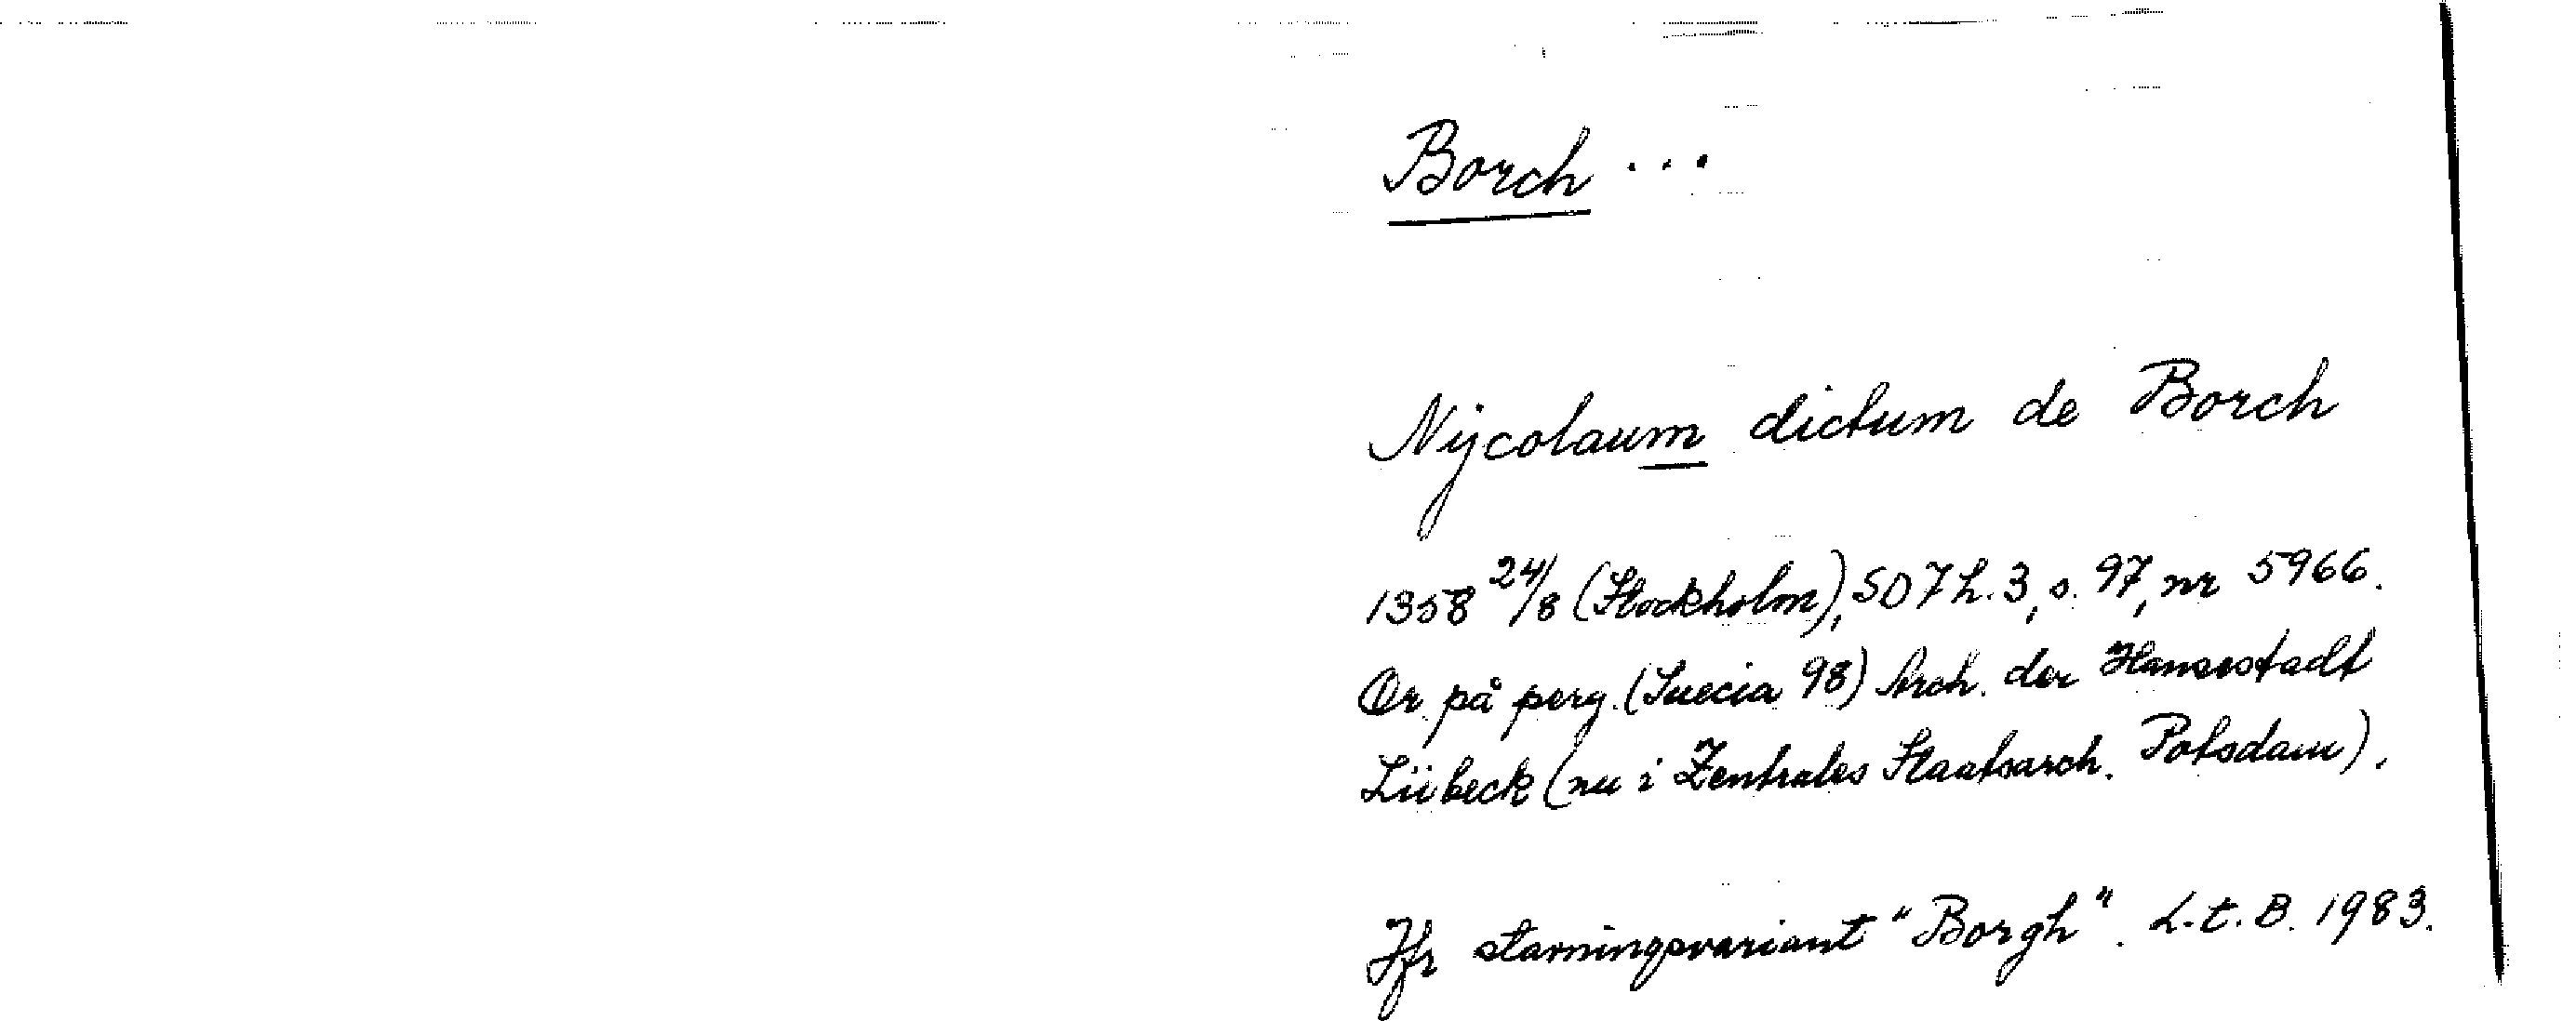 Borch ...
Nijcolaum dictum de Borch
1358 24/8 (Stockholm), SD 7 h. 3, s. 97, nr 5966.
Or på perg. (Suecia 98) Arch. der Hansestadt
Lübeck (nu i Zentrales Staatsarch. Potsdam).
Jfr stavningsvariant "Borgh". L.t.B. 1983.